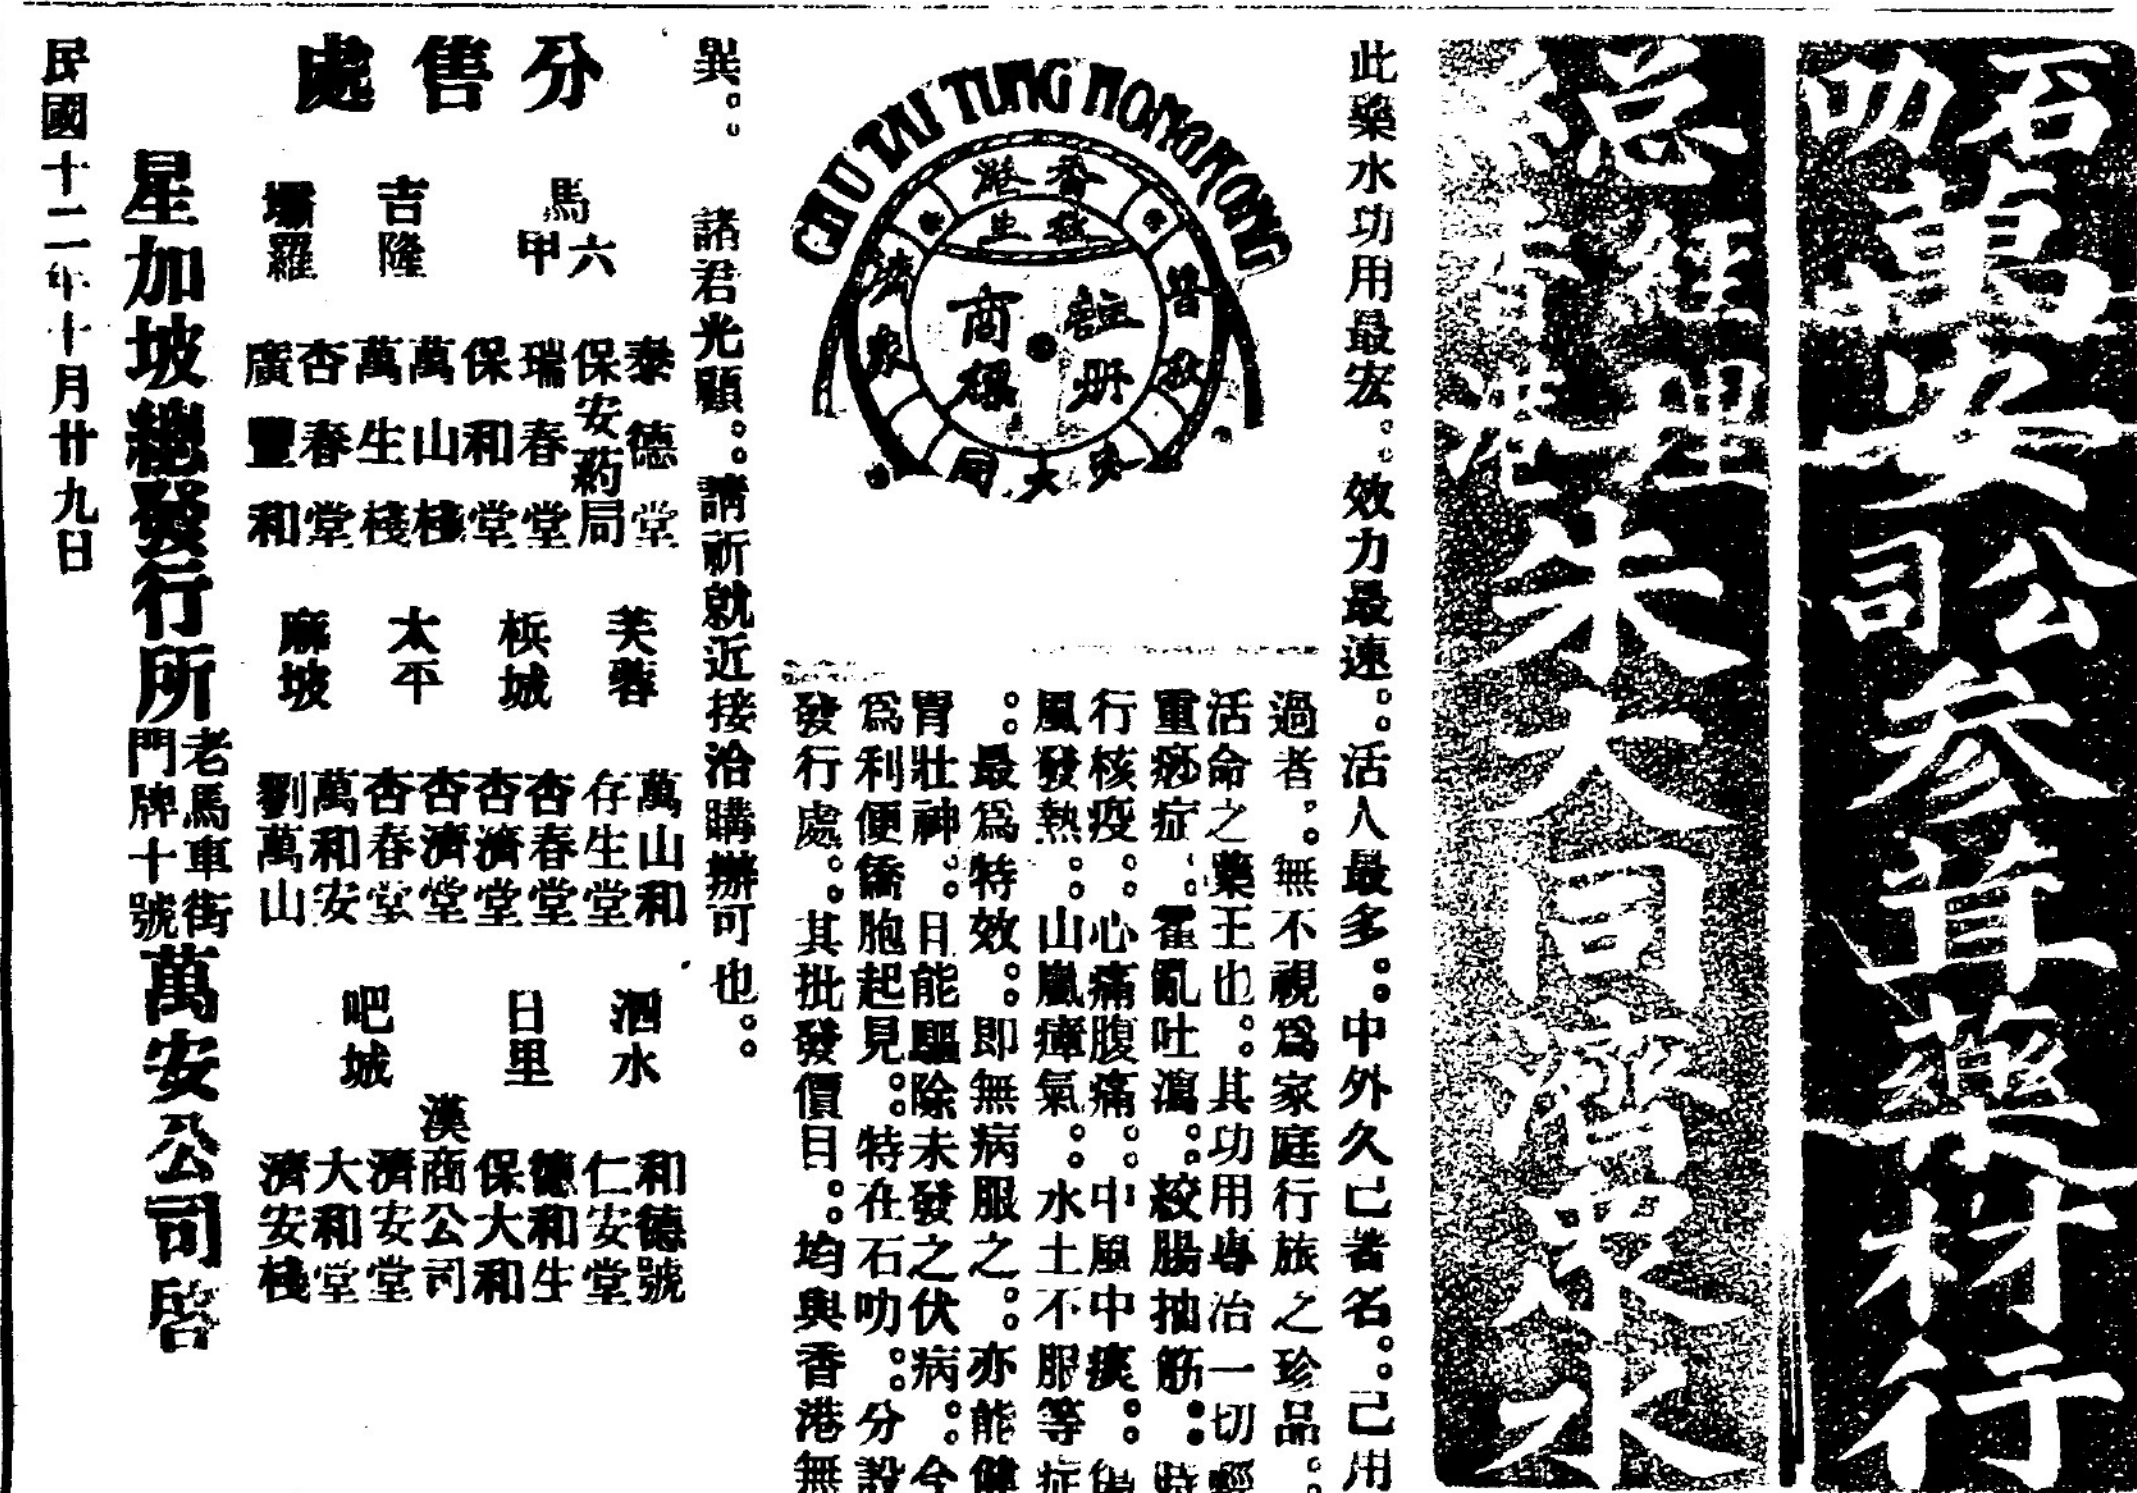 石叻萬安公司參茸藥材行
总經理香港朱大同濟眾水
此藥水功用最宏。效力最速。活人最多。中外久已著名。已用
過者。無不視爲家庭行旅之珍品。
活命之藥王也。其功用專治一切輕
重痧症。霍亂吐瀉。絞腸抽筋。時
行核疫。心痛腹痛。中風中痰。傷
風發熱。山嵐瘴氣。水土不服等症
。最爲特效。即無病服之。亦能健
胃壯神。日能驅除未發之伏病。今
爲利便僑胞起見。特在石叻。分設
發行處。其批發價目。均與香港無
異。諸君光顧。請祈就近接洽購辦可也。
CHU TAI TUNG HONGKONG
香港
救生
普救
濟眾
註册商標
朱大同
分售處
馬六甲
泰德堂
保安葯局
瑞春堂
保和堂
吉隆
萬山棧
萬生棧
壩羅
杏春堂
廣豐和
芙蓉
萬山和
存生堂
梹城
杏春堂
杏濟堂
太平
杏濟堂
杏春堂
麻坡
萬和安
劉萬山
泗水
和德號
仁安堂
日里
德和生
保大和
吧城
漢商公司
濟安堂
大和堂
濟安棧
星加坡總發行所老馬車街門牌十號萬安公司啓
民國十二年十月廿九日